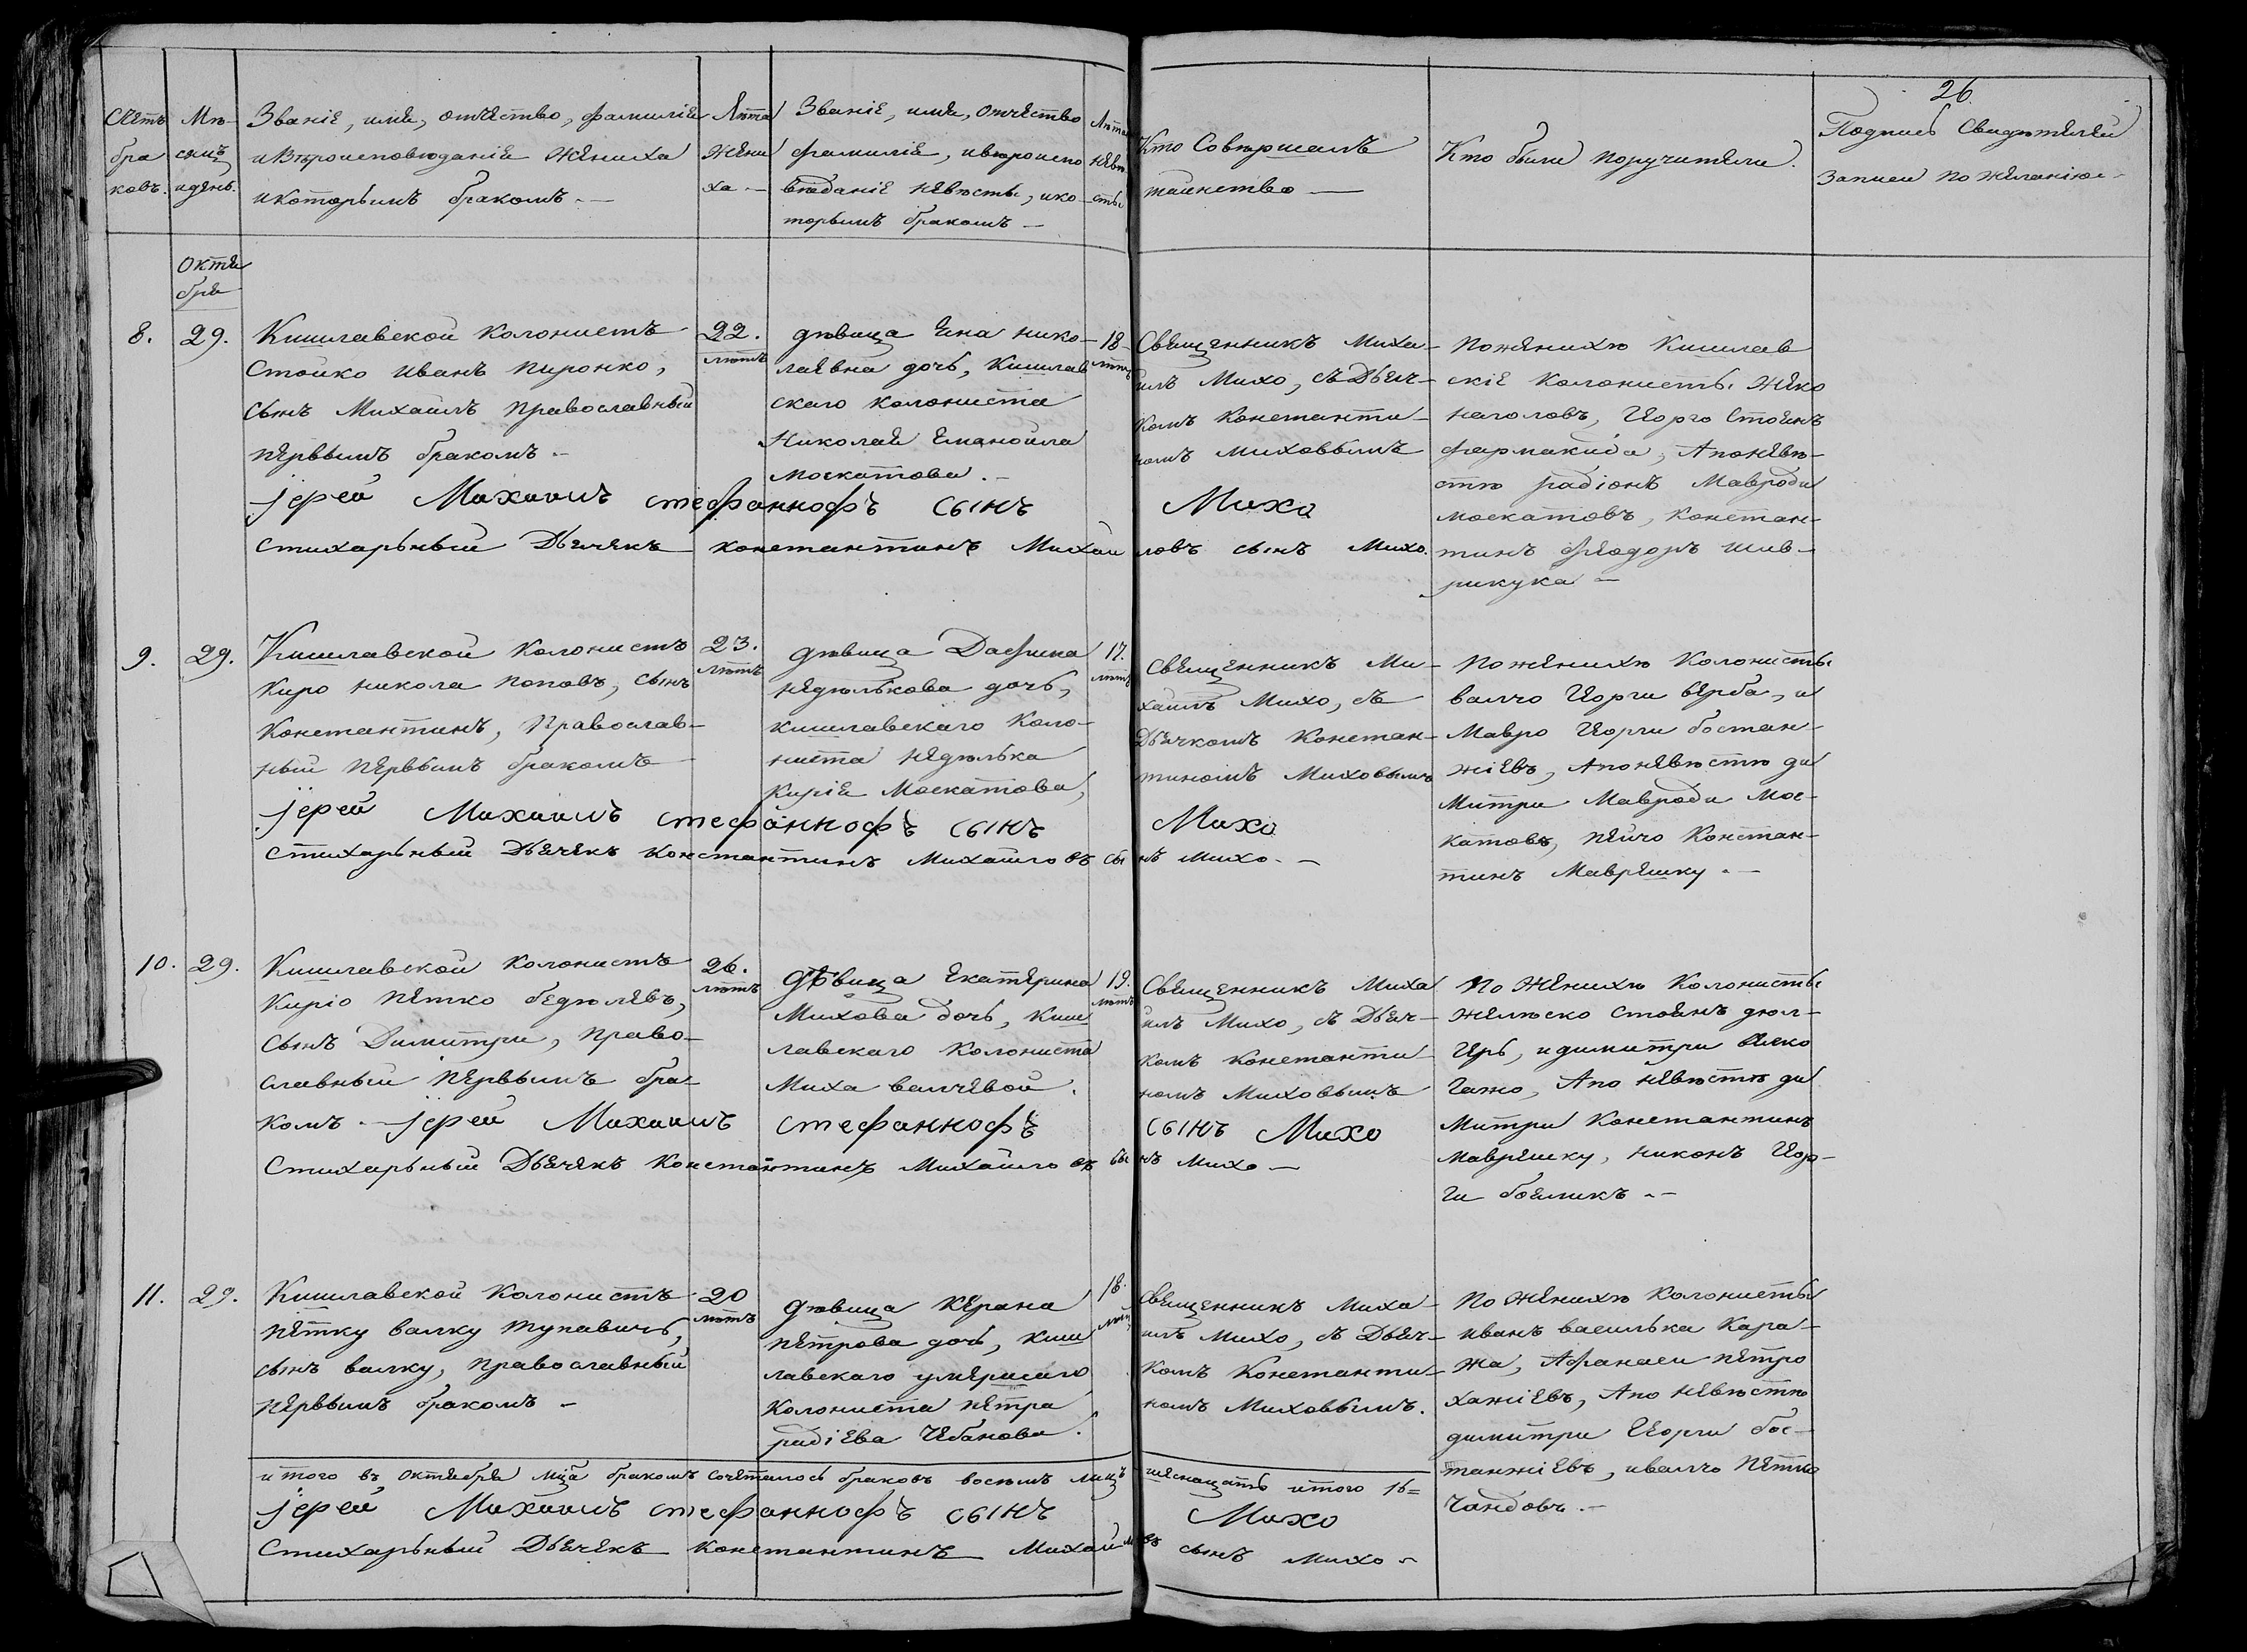 26.
Счетъ браковъ.
Мѣсяцъ и день.
Званіе, имя, отчество, фамилія
и вѣроисповѣданіе жениха
и которымъ бракомъ. —
Лѣта
жени
ха —
Званіе, имя, отчество
фамилія, ивѣроиспо
вѣданіе невѣсты, ико
торымъ бракомъ —
Лѣта
невѣ
сты
Кто Совершалъ
таинство —
Кто были поручители.
Подпись Свидѣтелей
записи по желанію —
Октя
бря
8.
29.
Кишлавской колонистъ
Стойко иванъ пиронко,
сынъ Михаилъ православный
первымъ бракомъ —
22.
лѣтъ
дѣвица Яна нико-
лаевна дочь, Кишлав
скаго колониста
Николая Еманоила
москатова. —
18
лѣтъ
Священникъ Миха-
илъ Михо, съ Дьяч-
комъ константи-
номъ миховымъ
пожениху Кишлав
скіе колонисты Жеко
наголовъ, Георго Стоянъ
фармакиди, Апоневѣ-
стѣ радіонъ Мавроди
москатовъ, констан-
тинъ феодоръ шив-
рикука —
іерей Михаилъ стефанкофъ сынъ Михо
стихарьный Дьячекъ константинъ Михаиловъ сынъ Михо.
9.
29.
Кишлавской колонистъ
Киро никола поповъ, сынъ
константинъ, православ-
ный первымъ бракомъ —
23.
лѣтъ
дѣвица Дафина
недѣлькова дочь,
кишлавскаго коло-
ниста недѣлька
Кирія Москатова,
17.
лѣтъ
священникъ Ми-
хаилъ Михо, съ
Дьячкомъ Констан-
тиномъ Миховымъ
по жениху колонисты
валчо Георги верба, и
мавро Георги бостан-
жіевъ, Апоневѣстѣ ди
митри Мавроди мос-
катовъ, пейчо Констан-
тинъ Маврешку. —
іерей Михаилъ стефанкофъ сынъ Михо
стихарьный Дьячекъ константинъ Михайловъ сынъ михо. —
10.
29.
Кишлавской колонистъ
Киріо петко бедѣлевъ,
сынъ Димитри, право-
славный первымъ бра-
комъ. —
26.
лѣтъ
дѣвица Екатерина
Михова дочь, Киш
лавскаго колониста
Миха валчевой.
19.
лѣтъ
Священникъ Миха
илъ Михо, съ Дьяч-
комъ константи-
номъ миховымъ
по жениху колонисты
желѣско стоянъ дюл-
герь, и димитри
гажо, Апо невѣстѣ ди
митри Константинъ
маврешку, никонъ Геор-
ги бояликъ. —
іерей Михаилъ стефанкофъ сынъ Михо
стихарьный Дьячекъ константинъ Михайловъ сынъ михо —
11.
29.
Кишлавской колонистъ
петку валку тупавичь,
сынъ валку, православный
первымъ бракомъ —
20
лѣтъ
дѣвица Керана
петрова дочь, киш
лавскаго умершаго
колониста петра
радіева Чебанова.
18.
лѣтъ
священникъ Миха-
илъ михо, съ Дьяч-
комъ Константи-
номъ Миховымъ.
по жениху колонисты
иванъ василька Кара-
жа, Афанаси петро
хажіевъ, Апо невѣстѣ
димитри Георги бос-
танжіевъ, ивалчо петко
Чандовъ. —
итого въ октябрѣ мца бракомъ сочеталось браковъ восемъ лицъ шеснацать итого 16=
іерей Михаилъ стефанкофъ сынъ Михо
стихарьный Дьячекъ константинъ Михайловъ сынъ михо —